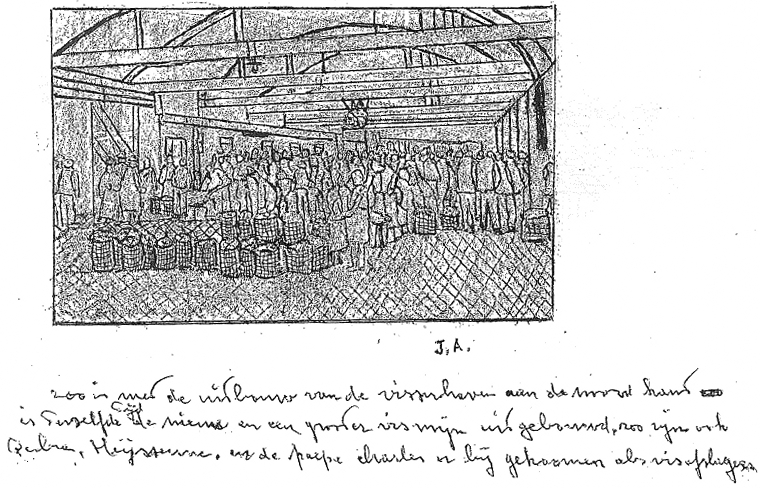 J.A.
zoo is met de uitbouw van de visserhaven aan de noord kand
is terzelfde tijd de nieuwe en een groote vismijn uitgebouwd, zoo zijn ook
en de paepe charles er bij gekoomen als visafslagers